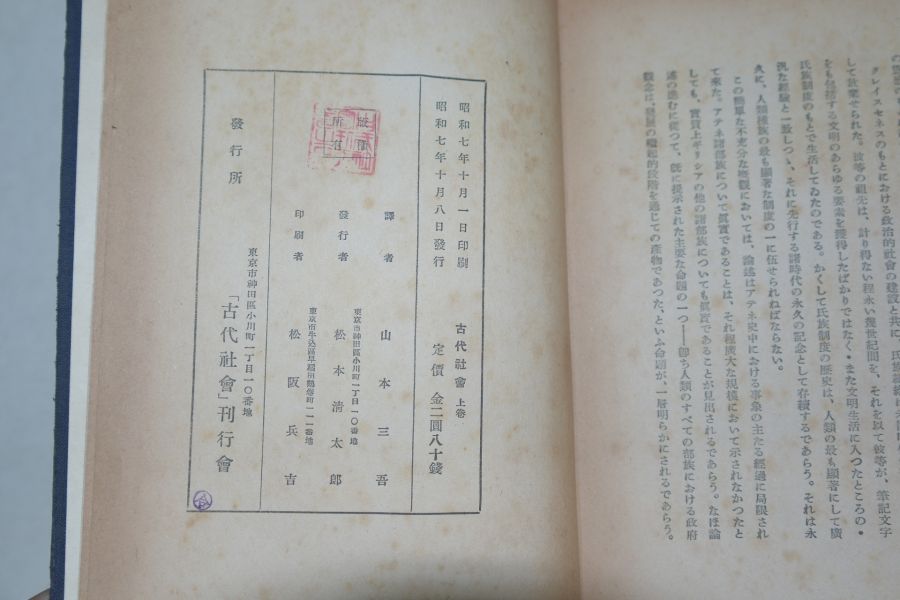 クレイスセネスのもとにおける政治的社會の建設と共に、氏族
して放棄せられた。彼等の祖先は、計り得ない程永い幾世紀間を、それを以て彼等が、筆記文字
をも包括する文明のあらゆる要素を獲得したばかりではなく・また文明生活に入つたところの・
氏族制度のもとで生活してゐたのである。かくして氏族制度の歴史は、人類の最も顯著にして廣
況な經驗と一致しつゝ、それに先行する諸時代の永久の記念として存續するであらう。それは永
久に、人類種族の最も顯著な制度の一に伍せられねばならない。
この簡單な不充分な概觀においては、論述はアテネ史中における事象の主たる經過に局限され
て來た。アテネ諸部族について眞實であることは、それ程廣大な規模において示されなかつたと
しても、實質上ギリシアの他の諸部族についても眞實であることが見出されるであらう。なほ論
述の進むに從つて、既に提示された主要な命題の一つ——卽ち人類のすべての部族における政府
觀念は、發展の繼起的段階を通じての產物であつた、といふ命題が、一層明らかにされるであらう。
昭和七年十月一日印刷
昭和七年十月八日發行
古代社會 上卷
定價 金二圓八十錢
譯者 山本三吾
東京市神田區小川町一丁目一〇番地
發行者 松本淸太郎
東京市牛込區早稻田鶴卷町一一一番地
印刷者 松阪兵吉
東京市神田區小川町一丁目一〇番地
發行所 「古代社會」刊行會